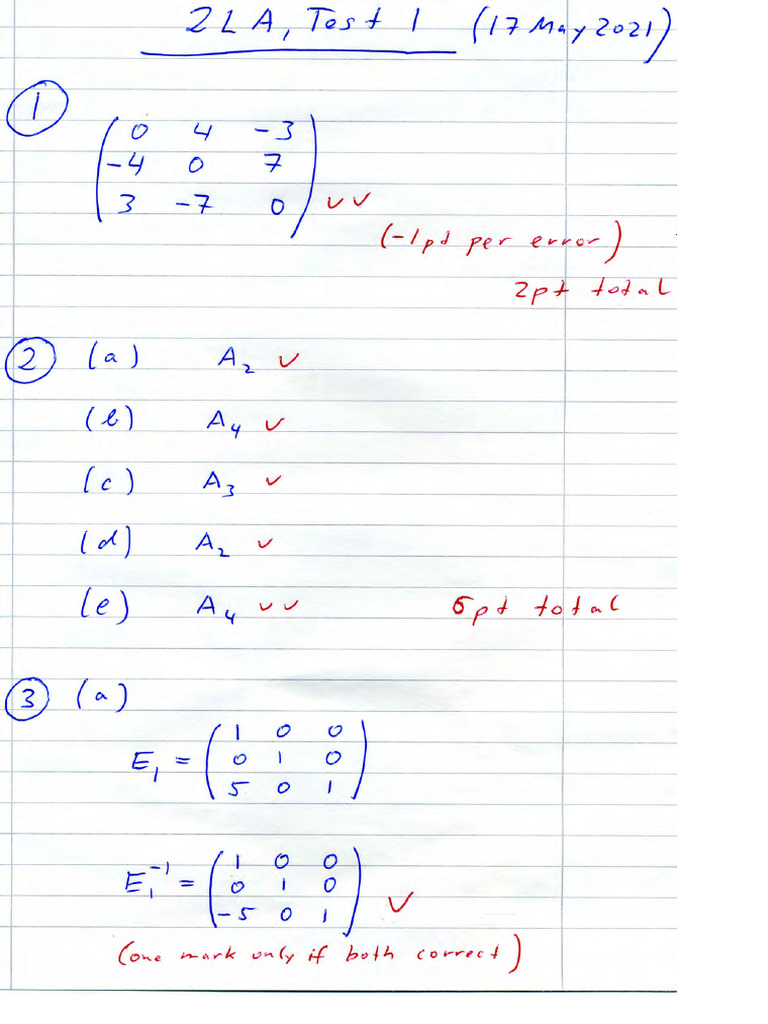 2LA, Test 1 (17 May 2021)
1
0 4 -3
-4 0 7
3 -7 0 ✓✓
(-1pt per error)
2pt total
2 (a) A₂ ✓
(b) A₄ ✓
(c) A₃ ✓
(d) A₂ ✓
(e) A₄ ✓✓ 6pt total
3 (a)
1 0 0
E₁ = 0 1 0
5 0 1
1 0 0
E₁⁻¹ = 0 1 0
-5 0 1 ✓
(one mark only if both correct)